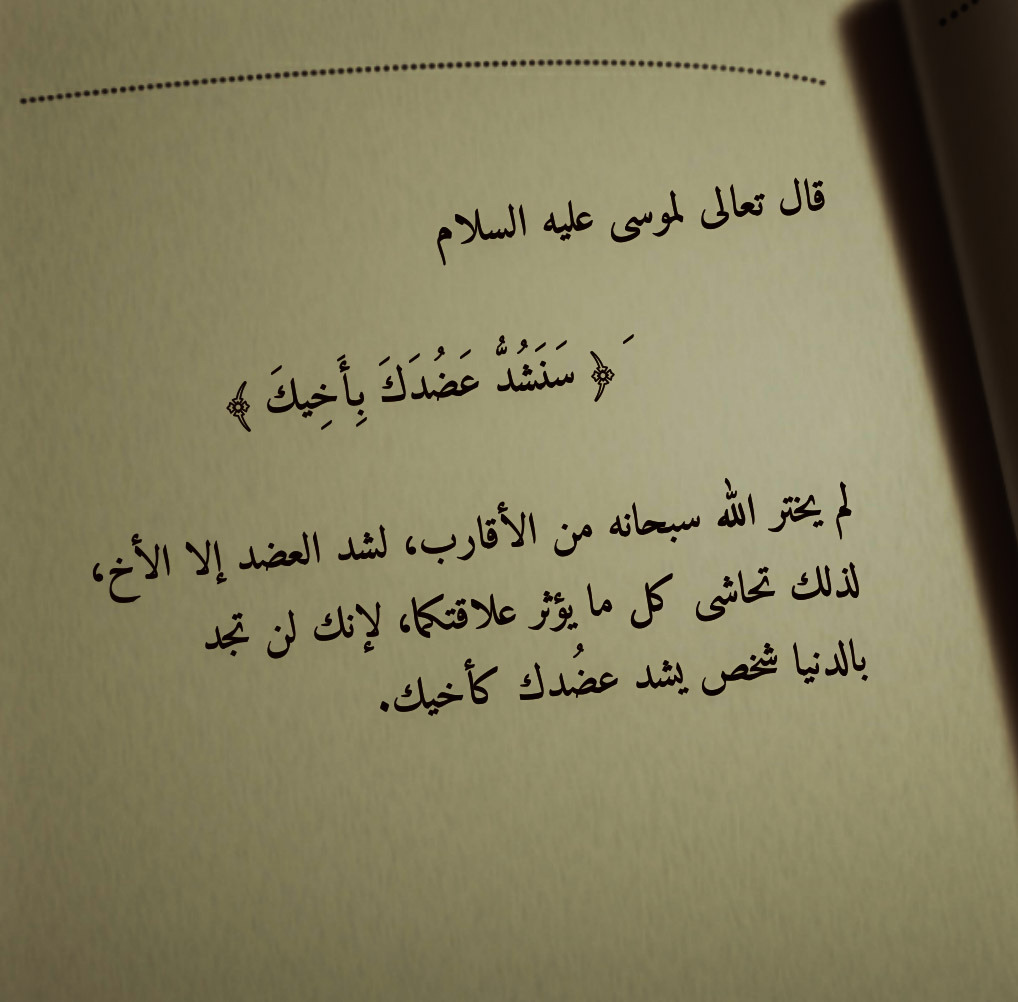 قال تعالى لموسى عليه السلام
َ ﴿ سَنَشُدُّ عَضُدَكَ بِأَخِيكَ ﴾
لم يختر الله سبحانه من الأقارب، لشد العضد إلا الأخ،
لذلك تحاشى كل ما يؤثر علاقتكما، لإنك لن تجد
بالدنيا شخص يشد عضُدك كأخيك.